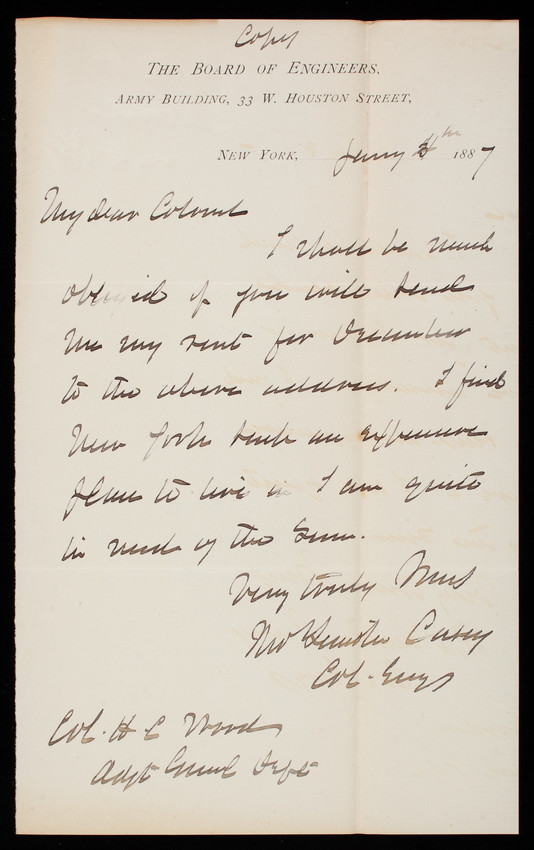 Copy
THE BOARD OF ENGINEERS,
ARMY BUILDING, 33 W. HOUSTON STREET,
NEW YORK, Jany 4th 1887
My dear Colonel
I shall be much
obliged if you will send
me my rent for December
to the above address. I find
New York such an expensive
place to live in I am quite
in need of the same.
Very truly Yours
Thos Lincoln Casey
Col. Engs
Col. H C Wood
Adjt Genl Dept